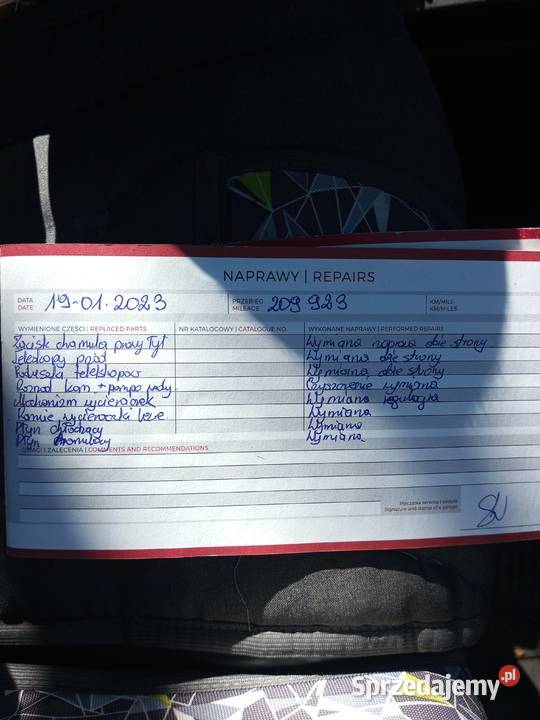 NAPRAWY | REPAIRS
DATA DATE 19-01.2023 PRZEBIEG MILEAGE 209 923 KM/MILE KM/MILES
WYMIENIONE CZĘŚCI | REPLACED PARTS NR KATALOGOWY | CATALOGUE NO. WYKONANE NAPRAWY | PERFORMED REPAIRS
Zacisk hamulca prawy Tył Wymiana naprawa obie strony
Teleskopy przód Wymiana obie strony
Poduszka teleskopów Wymiana obie strony
Rozrząd kom + pompa wody Czyszczenie wymiana
Mechanizm wycieraczek Wymiana regulacja
Ramie wycieraczki lewe Wymiana
Płyn chłodzący Wymiana
Płyn hamulcowy Wymiana
UWAGI I ZALECENIA | COMMENTS AND RECOMMENDATIONS
Pieczątka serwisu i podpis
Signature and stamp of a garage
Sprzedajemy.pl